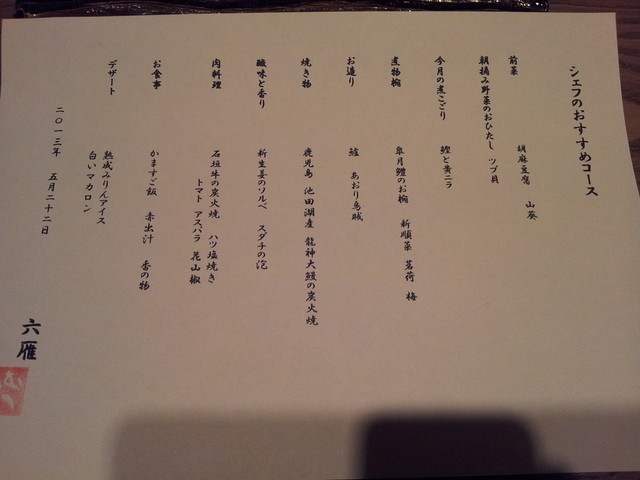 シェフのおすすめコース
前菜
胡麻豆腐 山葵
朝摘み野菜のおひたし ツブ貝
今月の煮こごり
鰹と黄ニラ
煮物椀
皐月鱧のお椀 新順菜 茗荷 梅
お造り
鱸 あおり烏賊
焼き物
鹿児島 池田湖産 龍神大鰻の炭火焼
酸味と香り
新生姜のソルベ スダチの泡
肉料理
石垣牛の炭火焼 ハツ塩焼き
トマト アスパラ 花山椒
お食事
かますご飯 赤出汁 香の物
デザート
熟成みりんアイス
白いマカロン
二〇一三年 五月二十二日
六雁